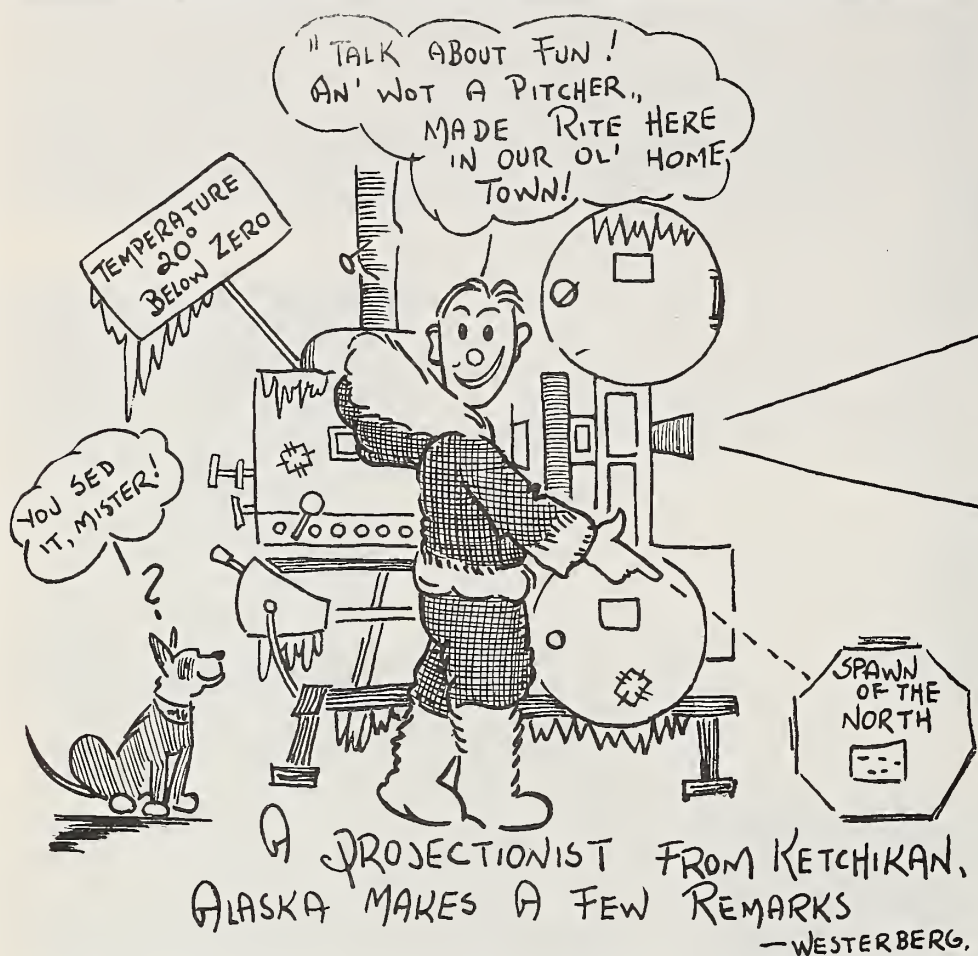 "TALK ABOUT FUN!
AN' WOT A PITCHER,,
MADE RITE HERE
IN OUR OL' HOME
TOWN!
TEMPERATURE
20°
BELOW ZERO
YOU SED
IT, MISTER!
?
SPAWN
OF THE
NORTH
A PROJECTIONIST FROM KETCHIKAN,
ALASKA MAKES A FEW REMARKS
—WESTERBERG.